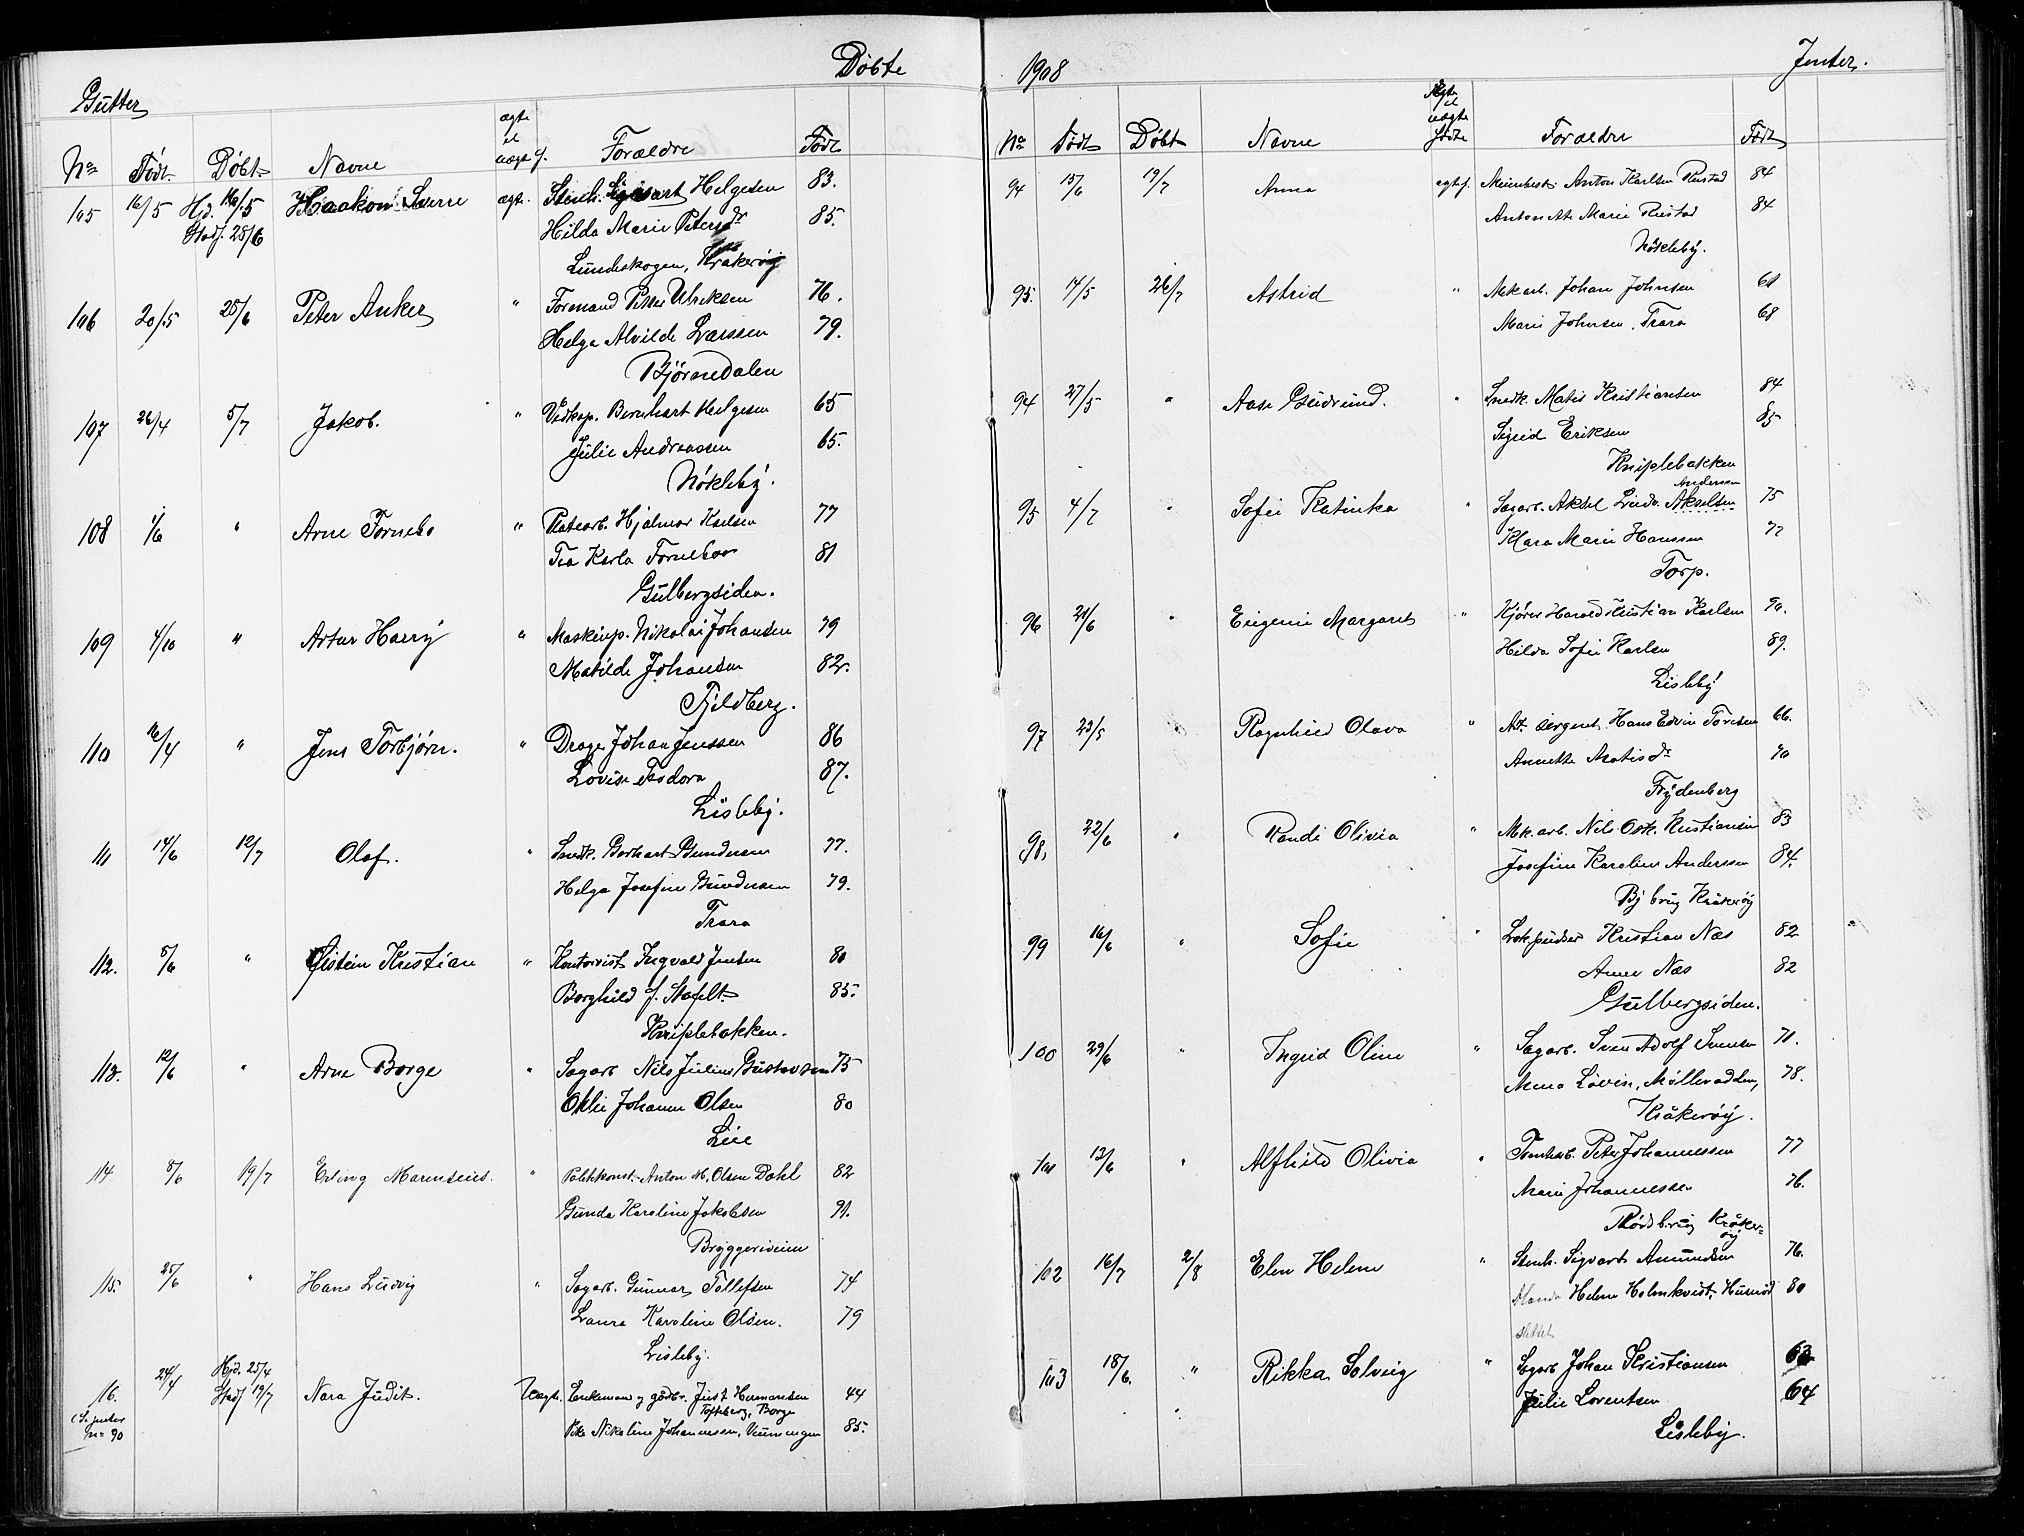 Døbte
Gutter
No Født. Døbt. Navne ægte el uægte f. Forældre Født
105 16/5 Hd. 16/5 Haakon Sverre ægt. Stenh. Sigvart Helgesen 83.
Stadf. 28/6 Hilda Marie Petersdr 85.
Lundeskogen, Kråkerøy
106 20/5 28/6 Peter Anker " Formand Peter Ulriksen 76.
Helga Alvilde Larssen 79.
Bjørnedalen
107 26/4 5/7 Jakob. " Vedkap. Bernhart Helgesen 65
Julie Andreassen 65.
Nökleby.
108 1/6 " Arne Fornebo " Platearb. Hjalmar Karlsen 77
Tea Karla Forneboe 81
Gulbergsiden.
109 4/10 " Artur Harry " Maskinp. Nikolai Johansen 79
Matilde Johansen 82.
Fjeldberg.
110 16/4 " Jens Torbjørn. " Drager Johan Jenssen 86
Lovise Teodora 87.
Lisleby.
111 14/6 12/7 Olaf. " Snedk. Gerhart Gundersen 77.
Helga Josefine Gundersen 79.
Trara
112. 8/6 " Øistein Kristian " Kontorist Ingvald Jensen 80
Borghild f. Stafelt 85.
Kniplebakken.
113. 12/6 " Arne Borge " Sagarb. Nils Julius Gustavsen 75
Oklie Johanne Olsen 80
Lie
114 8/6 19/7 Erling Marensius. " Politikonst. Anton M. Olsen Dahl 82
Gunda Karoline Jakobsen 91.
Bryggeriveien
115. 25/6 " Hans Ludvig " Sagarb. Gunnar Tollefsen 74
Laura Karoline Olsen. 79
Lisleby.
116. 24/4 Hjd. 25/4 Stadf 19/7 Nara Judit. Uægte Lensmann og gårdbr. Just Hermansen 44
Tofteberg, Borge
(Se jenter No 90 Pike Nikoline Johannessen, 85.
1908
Jenter.
No Født Døbt Navne Ægte el uægte fødte Forældre Født
94 15/6 19/7 Anna egt f. Anton Karlsen Rustad 84
Antonette Marie Rustad 84
Nökleby.
95. 14/5 26/7 Astrid " Mek arb. Johan Johnsen 61
Marie Johnsen, Trara 68
94 27/5 " Aase Gudrund. " Snedk. Matis Kristiansen 84
Sigrid Eriksen 85
Kniplebakken
Andersen
95 4/7 " Sofie Katinka " Sagarb. Aksel Ludv. Akselsen 75
Klara Marie Hanssen 77
Torp.
96 21/6 " Eugenie Margaret " Kjører Harald Kristian Karlsen 90.
Hilda Sofie Karlsen 89.
Lisleby
97 23/5 " Ragnhild Olava " Aft. sergent Hans Edvin Toresen 66.
Annette Matisdr 70
Frydenberg
98, 22/6 " Randi Olivia " Mk. arb. Nils Osk. Kristiansen 83
Josefine Karoline Anderssen 84.
Bj brug Kråkerøy
99 16/6 " Sofie " Lok pudser Kristian Næs 82
Anne Næs 82
Gulbergsiden.
100 29/6 " Ingrid Oline " Sagarb. Sven Adolf Svensen 71.
Mina Lovise, Møllerodden, 78.
Kråkerøy.
101 13/6 " Alfhild Olivia " Tomtarb. Peter Johannessen 77
Marie Johannessen 76.
Rødsbrug Kråkerøy
102 16/7 2/8 Elen Helene " Stenh. Sigvart Amundsen 76.
Helene Holmkvist, Husrød 80
slettet
103 18/6. " Rikka Solveig " Sagarb Johan Kristiansen 63
" Julie Lorentsen 64
Lisleby.